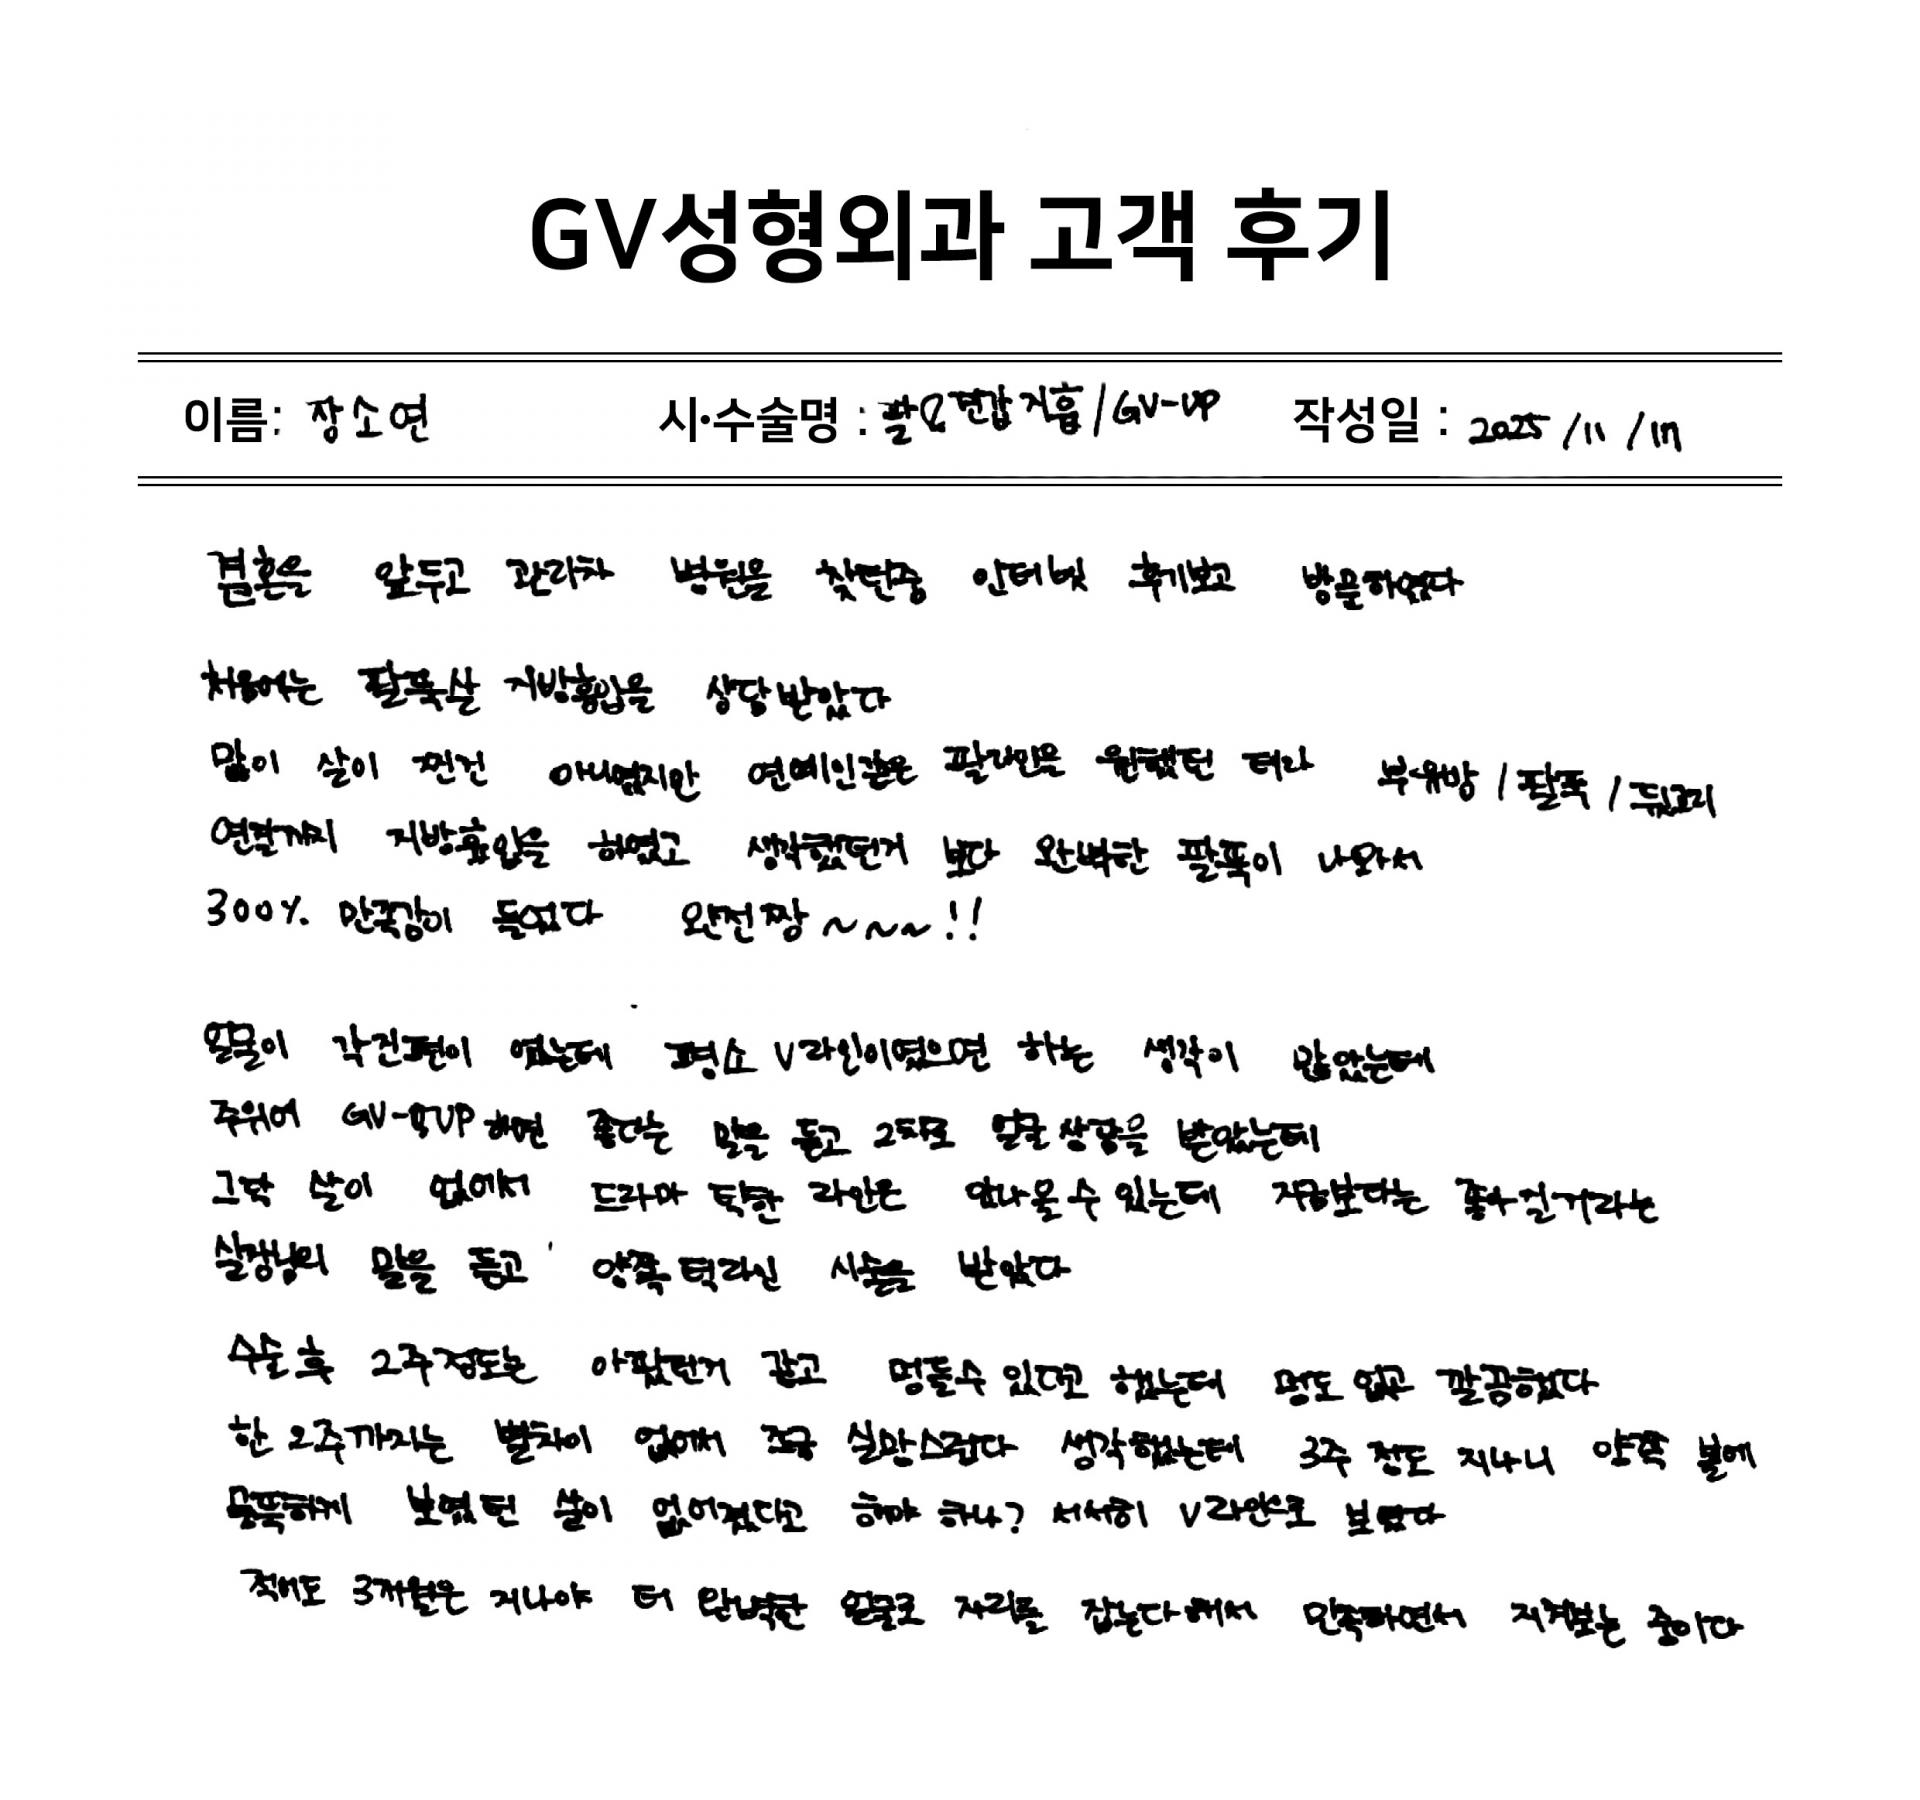 GV성형외과 고객 후기
이름: 장소연 시·수술명 : 팔& 지흡/GV-UP 작성일 : 2025/11/17
결혼을 앞두고 관리차 병원을 찾던중 인터넷 후기보고 방문하였다
처음에는 팔뚝살 지방흡입을 상담받았다
많이 살이 찐건 아니였지만 연예인같은 팔라인을 원했던 터라 부유방/팔뚝/뒤
연결까지 지방흡입을 하였고 생각했던거 보다 완벽한 팔뚝이 나와서
300% 만족감이 들었다 완전짱~~~!!
얼굴이 각진편이 없는데 평소 V라인이였으면 하는 생각이 많았는데
주위에 GV- UP하면 좋다는 말을 듣고 2차로 얼굴상담을 받았는데
그닥 살이 없에서 드라마틱한 라인은 안나올수있는데 지금보다는 좋아질거라는
실장님의 말을 듣고 양쪽턱라인 시술을 받았다
수술후 2주정도는 아팠던거 같고 멍들수있다고 했는데 멍도 없고 깔끔했다
한 2주까지는 별차이 없에서 조금 실망스럽다 생각했는데 3주 정도 지나니 양쪽 볼에
뭉뚝하게 보였던 살이 없어졌다고 해야 하나? 서서히 V라인으로 보였다
적어도 3개월은 지나야 더 완벽한 얼굴로 자리를 잡는다해서 만족하면서 지켜보는 중이다